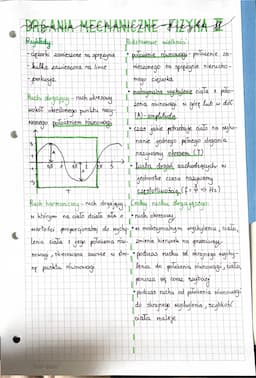 DRGANIA MECHANICZNE - FIZYKA II
Przykłady:
- ciężarki zawieszone na sprężynie
- kulka zawieszona na linie
- perkusja
Ruch drgający - ruch okresowy
wokół określonego punktu nazy-
wanego położeniem równowagi
T
Ruch harmoniczny - ruch drgający,
w którym na ciało działa siła o
wartości proporcjonalnej do wychy-
lenia ciała z jego położenia rów-
nowagi, skierowana zawsze w stro-
nę punktu równowagi
położenie równowagi - położenie za-
wieszonego na sprężynie nierucho-
mego ciężarka
maksymalne wychylenie ciała z poło-
żenia równowagi w górę lub w dół
(A) - amplituda
czas jakie potrzebuje ciało na wyko-
nanie jednego pełnego drgania
nazywamy okresem (T)
liczba drgań zachodzących w
jednostce czasu nazywamy
częstotliwością (f = 1/T => Hz)
Cechy ruchu drgającego:
ruch okresowy
w maksymalnym wychyleniu, ciało
zmienia kierunek na przeciwny
podczas ruchu od skrajnego wychy-
lenia do położenia równowagi, ciało
porusza się coraz szybciej
podczas ruchu od położenia równowagi
do skrajnego wychylenia, szybkość
ciała maleje